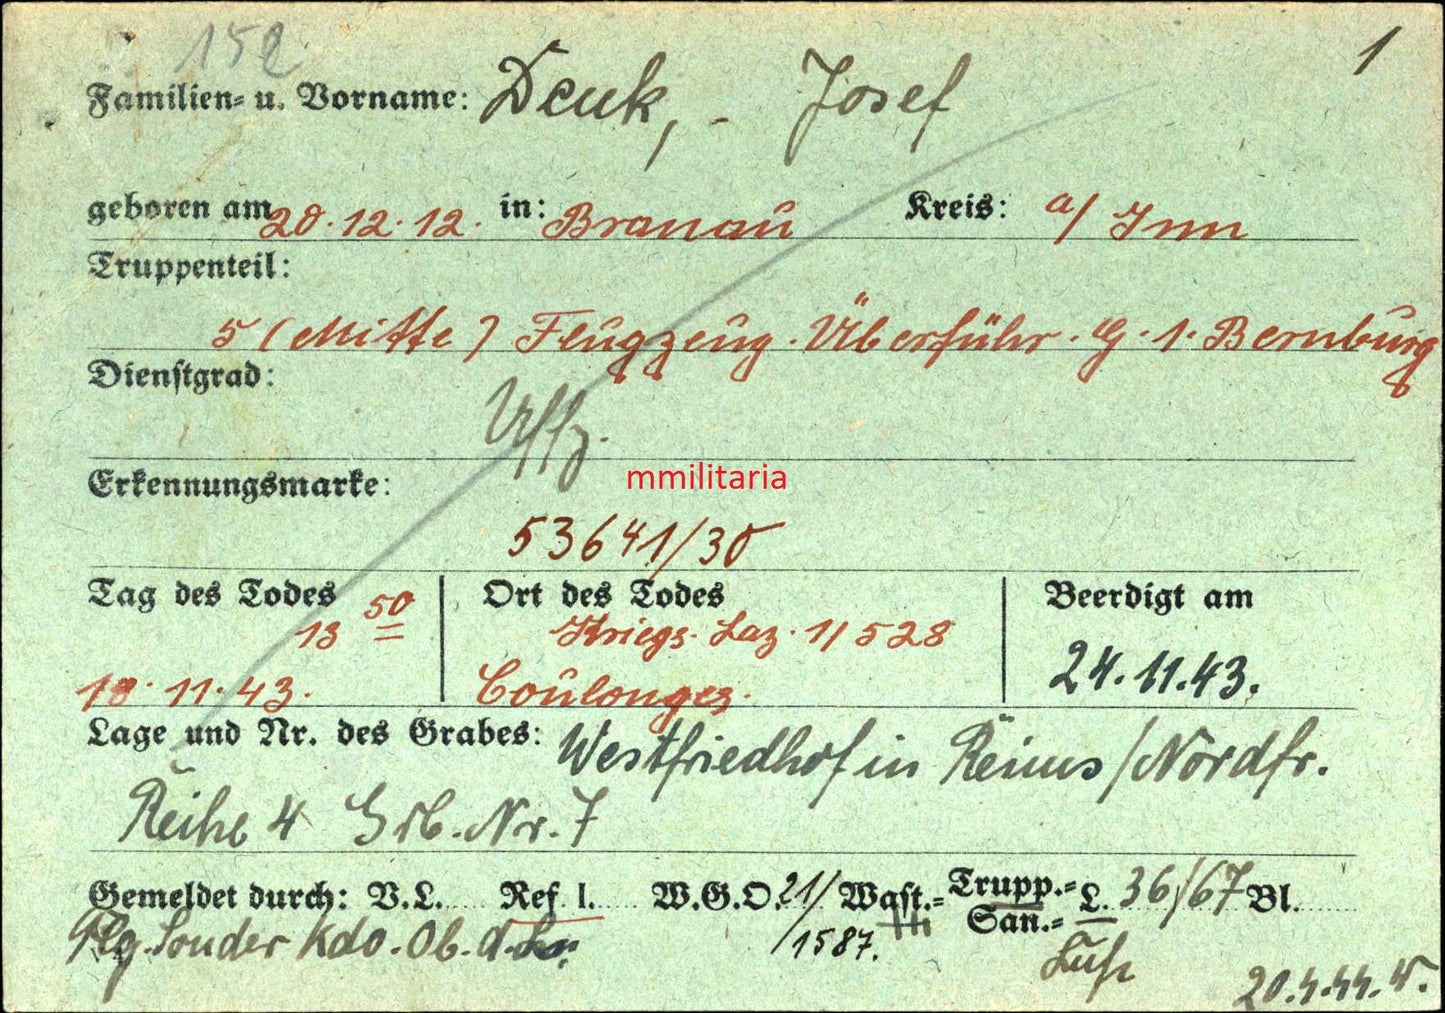 152
1
Familien- u. Vorname: Denk, - Josef
geboren am 20.12.12. in: Branau Kreis: a/ Inn
Truppenteil:
5 (Mitte) Flugzeug. Überführ. G. 1. Bernburg
Dienstgrad:
Uffz.
mmilitaria
Erkennungsmarke:
53641/30
Tag des Todes Ort des Todes Beerdigt am
13 50 Kriegs. Laz. 1/528
18.11.43. Coulonges. 24.11.43.
Lage und Nr. des Grabes: Westfriedhof in Reims/Nordfr.
Reihe 4 Grb. Nr. 7
Gemeldet durch: V.L. Ref. I. W.G.O. 21/ Wast.- Trupp.- L. 36/67 Bl.
San.-
Flg. Sonder Kdo. Ob. d. 1587.
20.4.44.